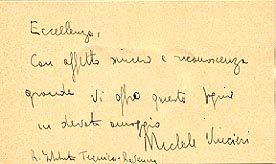 Eccellenza,
Con affetto sincero e riconoscenza
grande Vi offro questo
in devoto omaggio
Michele
R. Istituto Tecnico - Ravenna